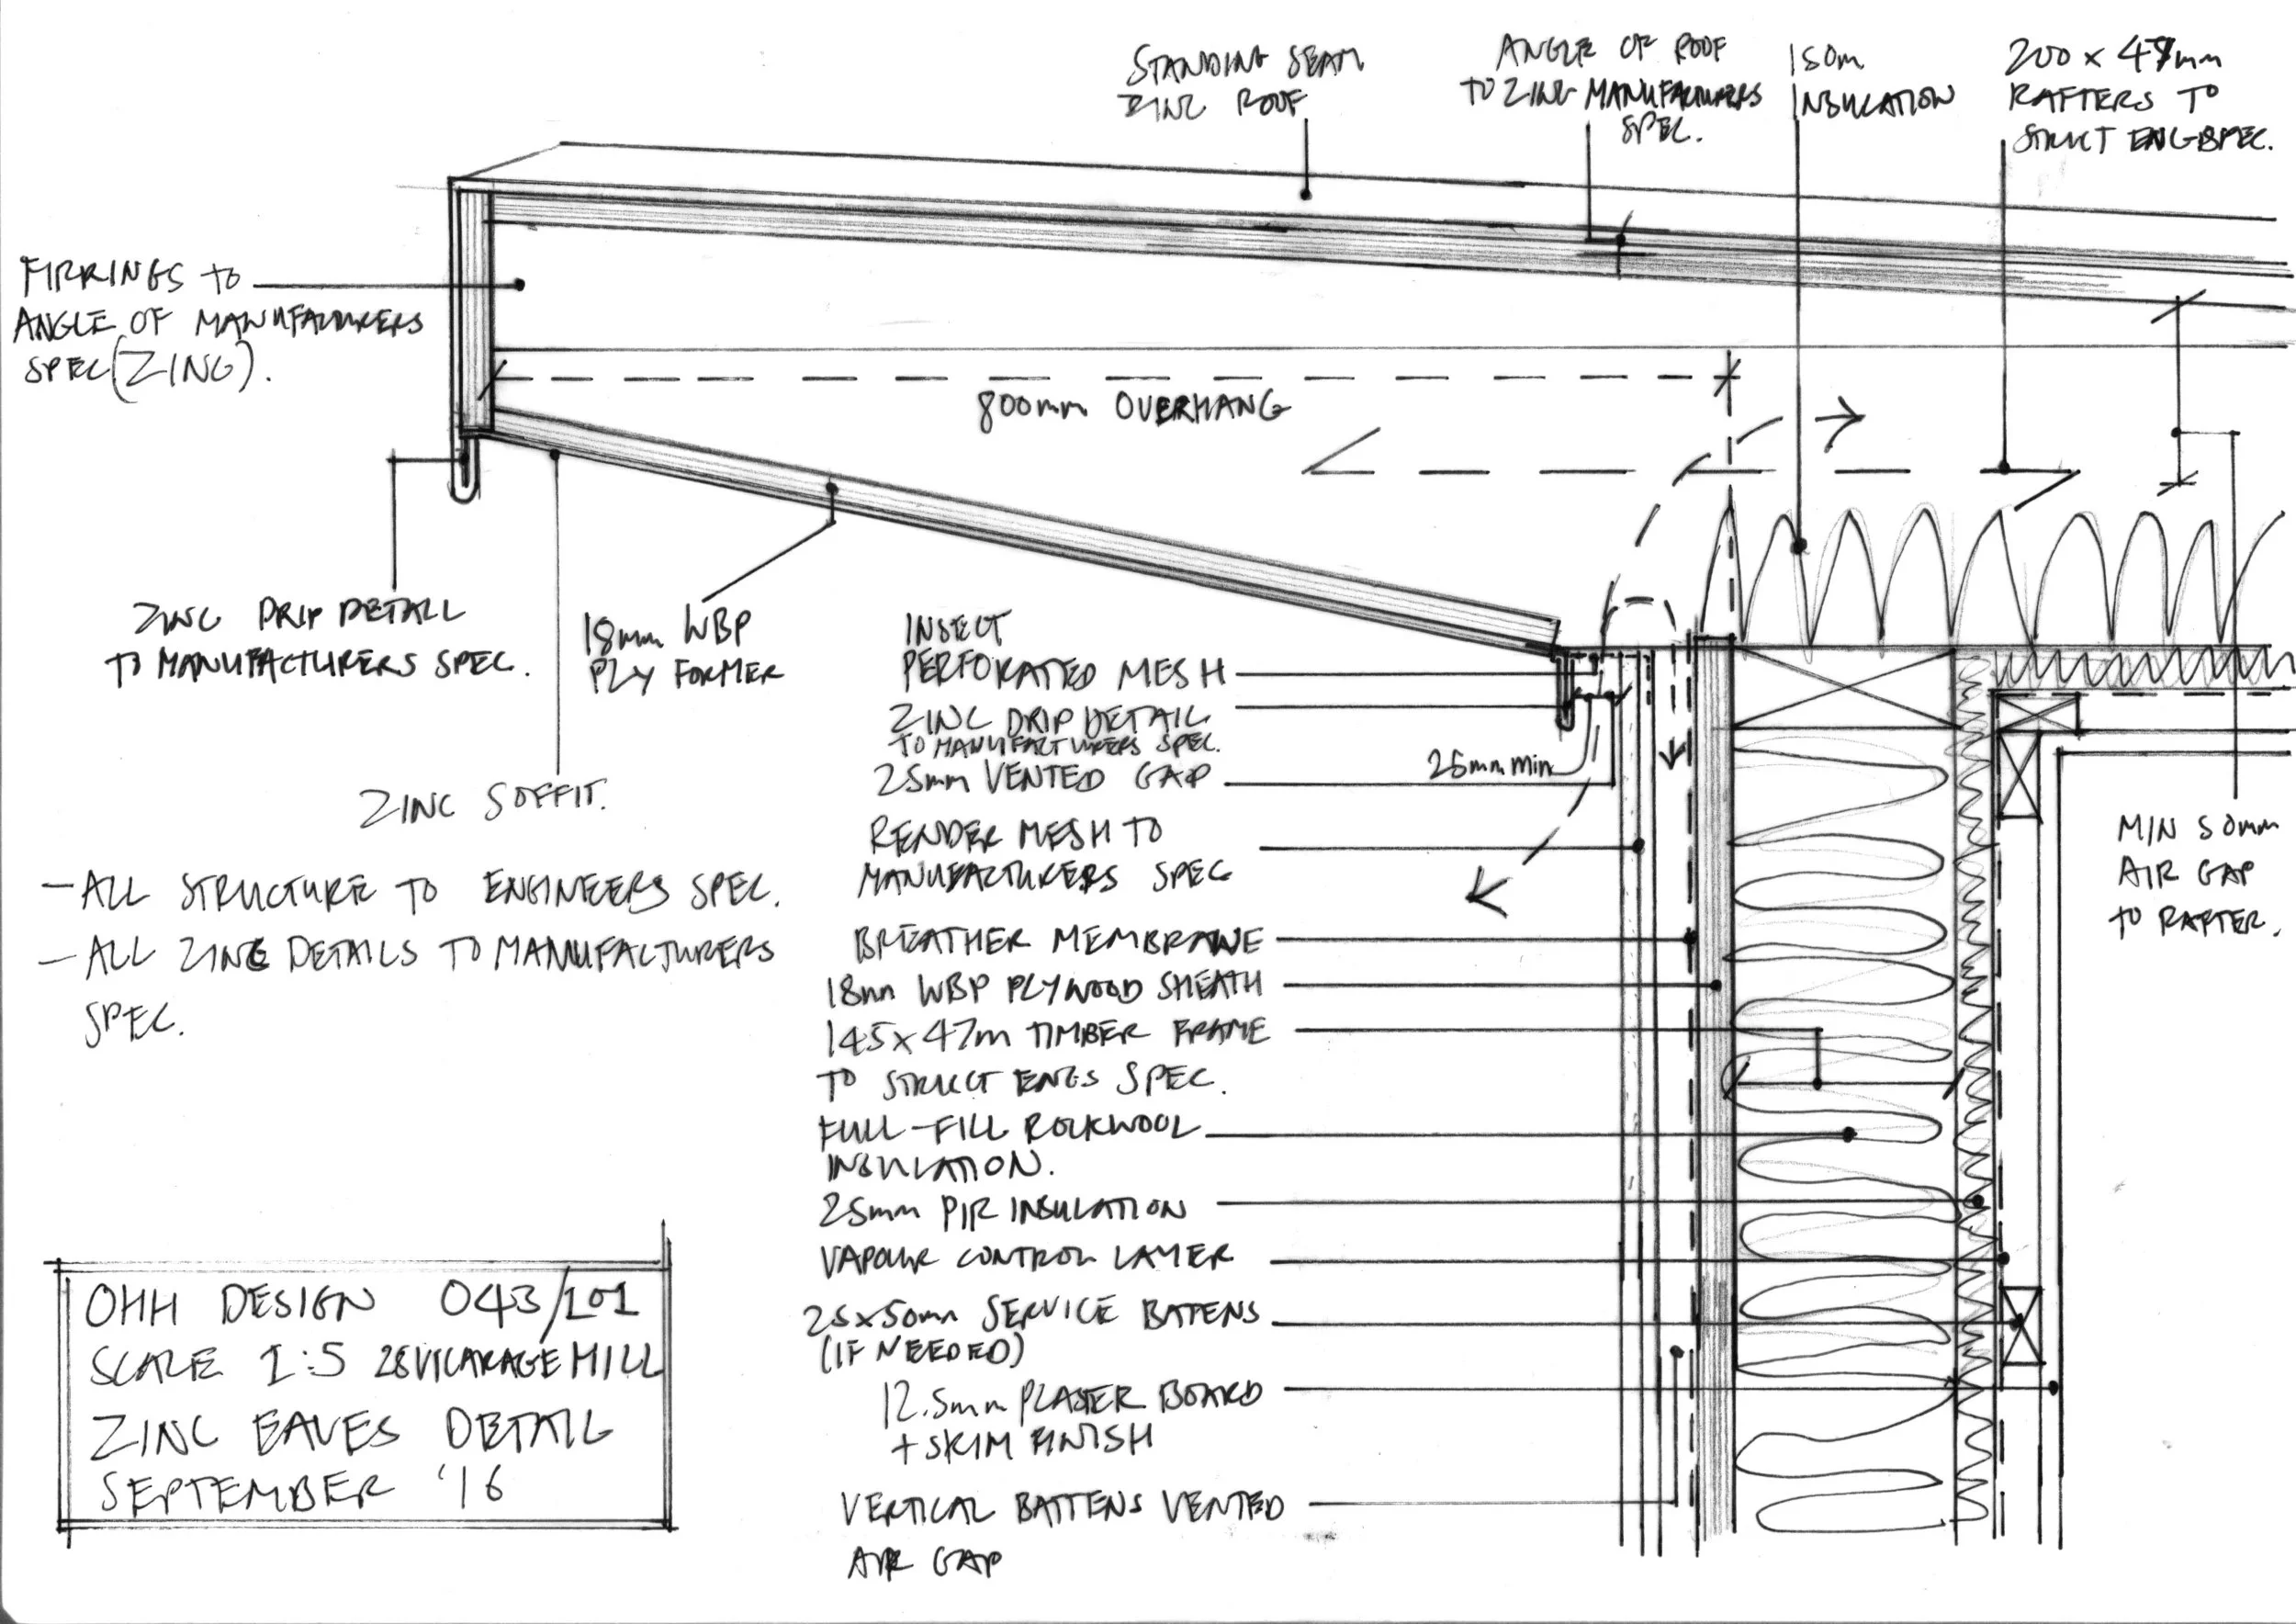 STANDING SEAM
ZINC ROOF
ANGLE OF ROOF
TO ZINC MANUFACTURERS
SPEC.
150m
INSULATION
200 x 47mm
RAFTERS TO
STRUCT ENG SPEC.
FIRRINGS TO
ANGLE OF MANUFACTURERS
SPEC (ZINC).
800mm OVERHANG
ZINC DRIP DETAIL
TO MANUFACTURERS SPEC.
18mm WBP
PLY FORMER
ZINC SOFFIT.
INSECT
PERFORATED MESH
ZINC DRIP DETAIL
TO MANUFACTURERS SPEC.
25mm VENTED GAP
25mm min
RENDER MESH TO
MANUFACTURERS SPEC
BREATHER MEMBRANE
18mm WBP PLYWOOD SHEATH
145x47m TIMBER FRAME
TO STRUCT ENGS SPEC.
FULL-FILL ROCKWOOL
INSULATION.
25mm PIR INSULATION
VAPOUR CONTROL LAYER
25x50mm SERVICE BATTENS
(IF NEEDED)
12.5mm PLASTER BOARD
+ SKIM FINISH
VERTICAL BATTENS VENTED
AIR GAP
MIN 50mm
AIR GAP
TO RAFTER.
- ALL STRUCTURE TO ENGINEERS SPEC.
- ALL ZINC DETAILS TO MANUFACTURERS
SPEC.
OHH DESIGN 043/101
SCALE 1:5 28 VICARAGE HILL
ZINC EAVES DETAIL
SEPTEMBER '16